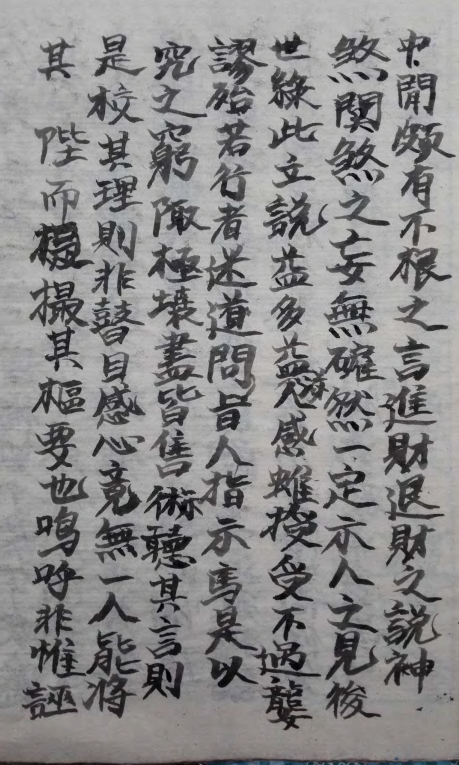 中間頗有不根之言進財退財之說神
煞関煞之妄無確然一定示人之見後
世緣此立說益多益滋惑感雖授受不過襲
謬殆若行者迷道問盲人指示焉是以
究之窮陬極壤盡皆售術聽其言則
是校其理則非瞽目惑心竟無一人能将
其陛而撮其樞要也嗚呼非惟誣